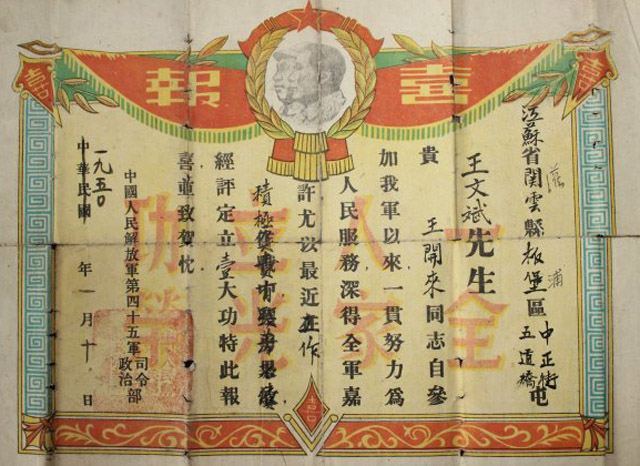 喜報
喜
喜
江蘇省関雲縣板堡區中正街五道橋屯
灌
浦
王文斌先生
貴 王開來同志自參
加我軍以來一貫努力為
人民服務深得全軍嘉
許尤以最近在作
積極
經評定立壹大功特此報
喜並致賀忱
中國人民解放軍第四十五軍司令部政治部
一九五〇
中華民國 年一月十日
一人立功
全家光榮